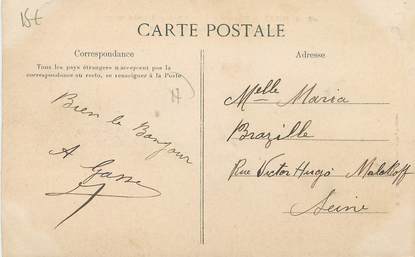 15€
CARTE POSTALE
Correspondance
Tous les pays étrangers n'acceptent pas la
correspondance au recto, se renseigner à la Poste
Bien le Bonjour
A Gasse
Adresse
Melle Maria
Brazille
Rue Victor Hugo Malakoff
Seine